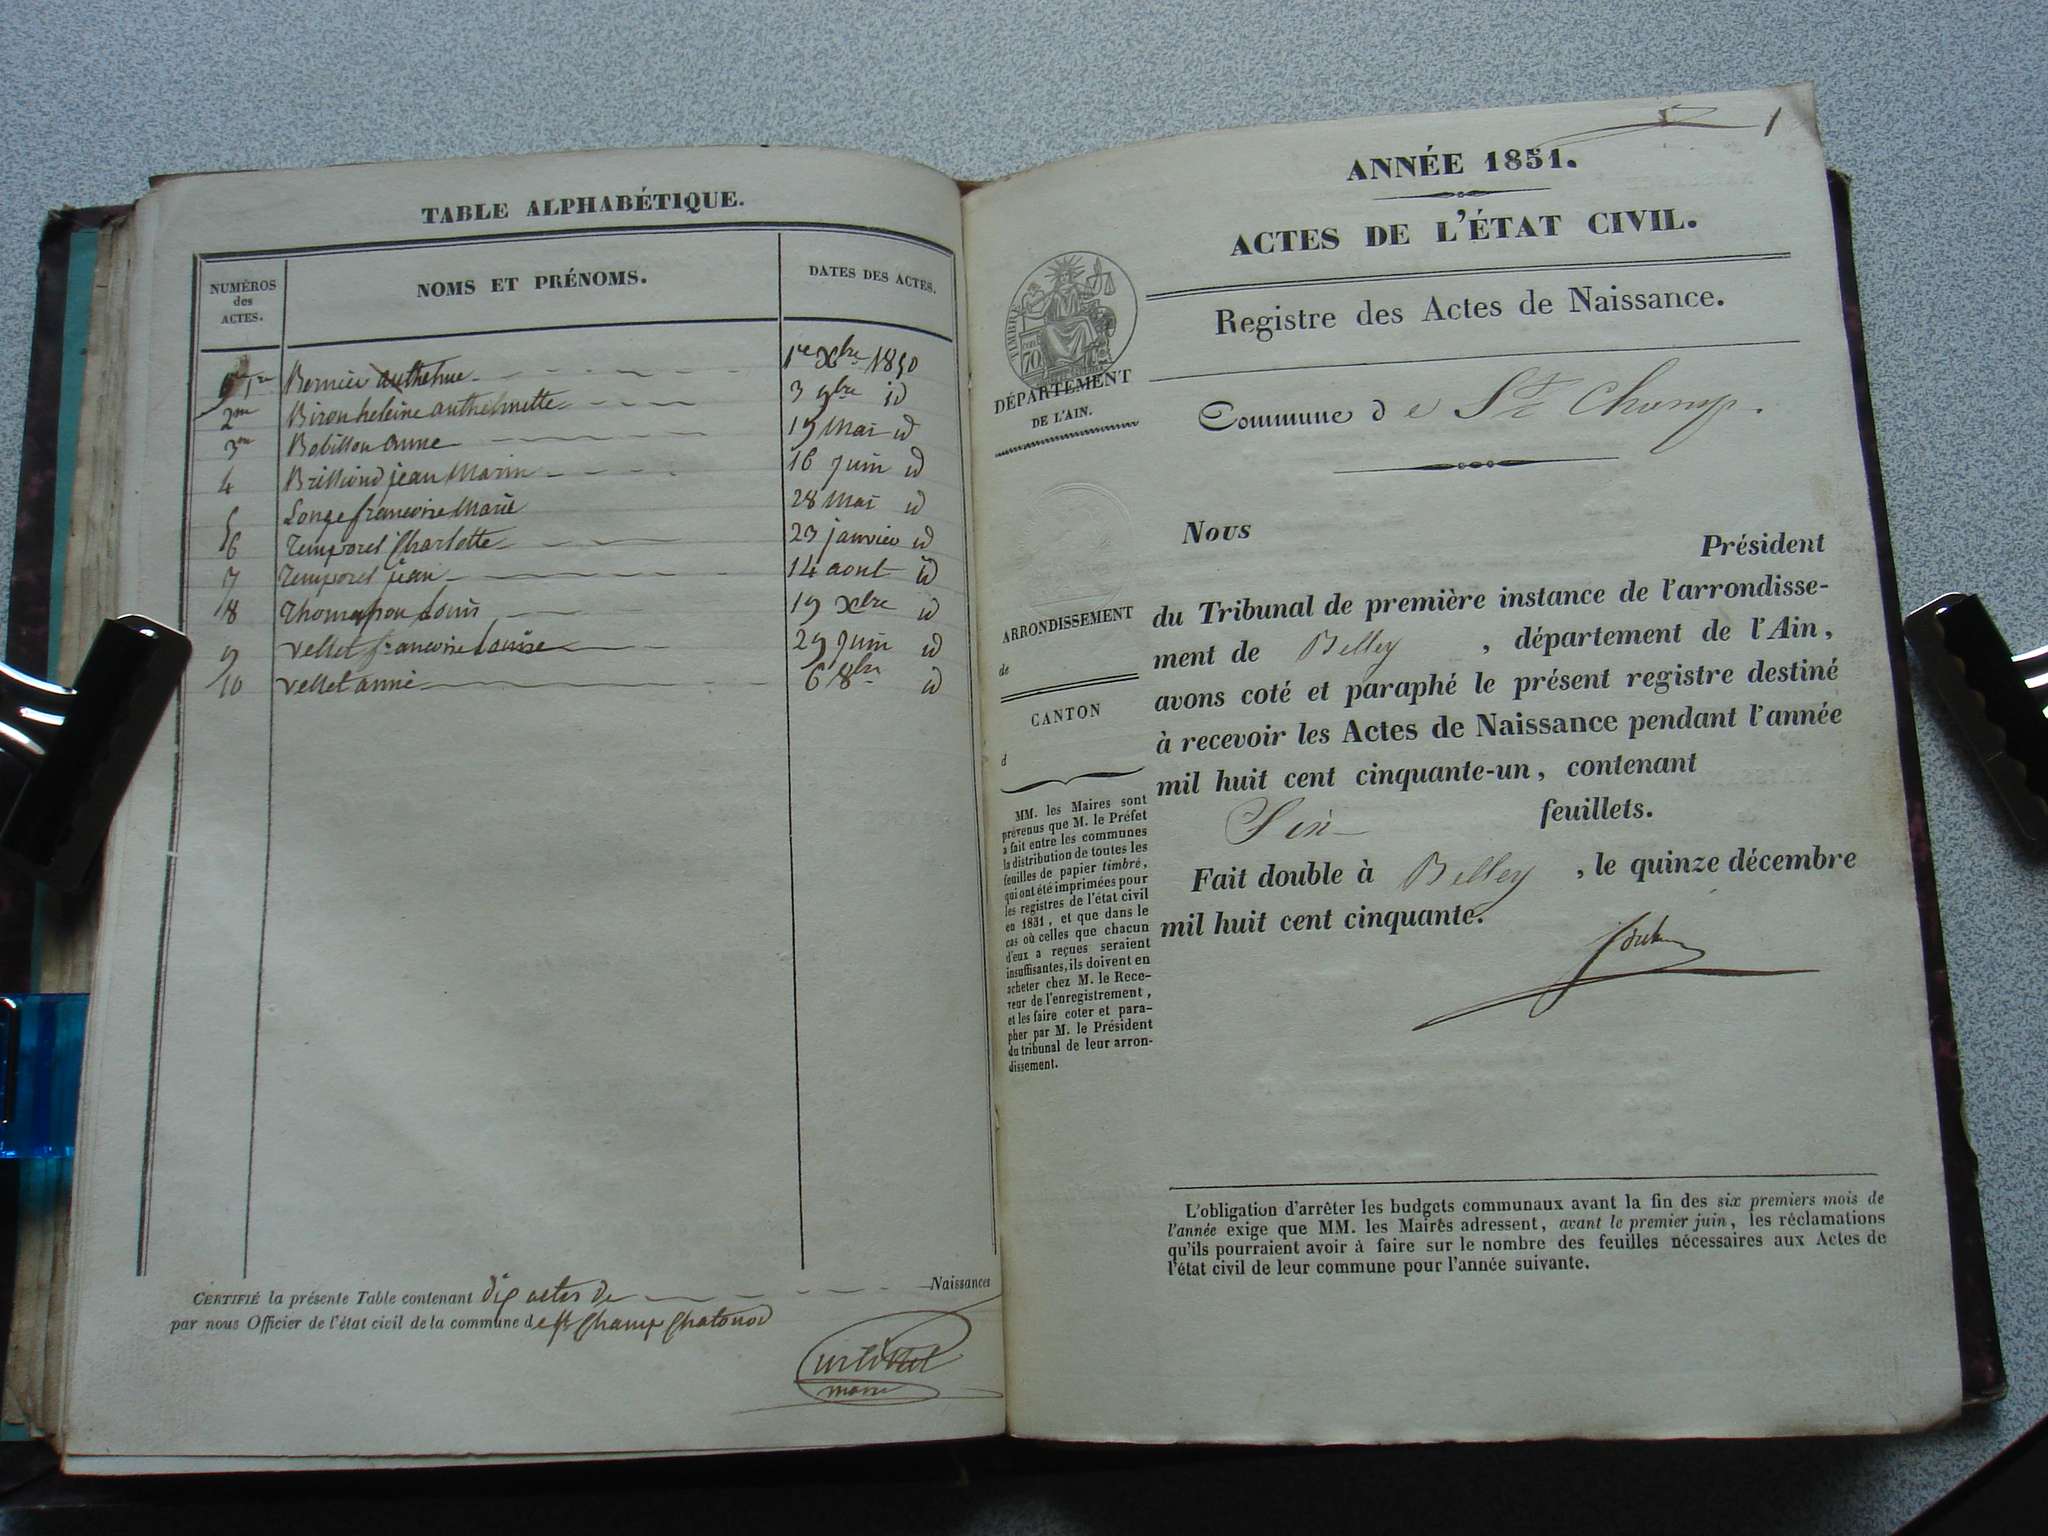 TABLE ALPHABÉTIQUE.
NUMÉROS
des
ACTES.
NOMS ET PRÉNOMS.
DATES DES ACTES.
1re Bernier anthelme 1re Xbre 1850
2me Biron heleine anthelmette 3 9bre id
3me Bobillon anne 19 Mai id
4 Brilliond jean Marin 16 juin id
5 Longe francoise Marie 28 Mai id
6 Temporel Charlotte 23 janvier id
7 Temporel jean 14 aout id
8 Thomasson Louis 19 Xbre id
9 vellet francoise Louise 29 Juin id
10 vellet anne 6 8bre id
CERTIFIÉ la présente Table contenant dix actes de Naissances
par nous Officier de l'état civil de la commune de St Champ Chatonod
maire
1
ANNÉE 1851.
ACTES DE L'ÉTAT CIVIL.
Registre des Actes de Naissance.
TIMBRE
70
DÉPARTEMENT
DE L'AIN.
Commune de St Champ.
ARRONDISSEMENT
de
CANTON
d
MM. les Maires sont
prévenus que M. le Préfet
a fait entre les communes
la distribution de toutes les
feuilles de papier timbré,
qui ont été imprimées pour
les registres de l'état civil
en 1851, et que dans le
cas où celles que chacun
d'eux a reçues seraient
insuffisantes, ils doivent en
acheter chez M. le Rece-
veur de l'enregistrement,
et les faire coter et para-
pher par M. le Président
du tribunal de leur arron-
dissement.
Nous
Président
du Tribunal de première instance de l'arrondisse-
ment de Belley, département de l'Ain,
avons coté et paraphé le présent registre destiné
à recevoir les Actes de Naissance pendant l'année
mil huit cent cinquante-un, contenant
Six feuillets.
Fait double à Belley, le quinze décembre
mil huit cent cinquante.
L'obligation d'arrêter les budgets communaux avant la fin des six premiers mois de
l'année exige que MM. les Maires adressent, avant le premier juin, les réclamations
qu'ils pourraient avoir à faire sur le nombre des feuilles nécessaires aux Actes de
l'état civil de leur commune pour l'année suivante.